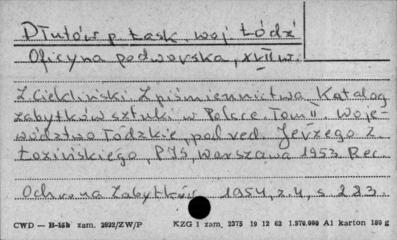 Dłutów p. Łask, woj. Łódź
Oficyna podworska, XVII w.
Z. Ciekliński Z piśmiennictwa. Katalog
zabytków sztuki w Polsce. Tom II. Woje-
wództwo Łódzkie, pod red. Jerzego Z.
Łozińskiego, PIS, Warszawa 1953. Rec.
Ochrona Zabytków 1954, z. 4, s. 283.
CWD — B-15b zam. 2922/ZW/P KZG 1 zam. 2375 19 12 62 1.570.000 A1 karton 180 g